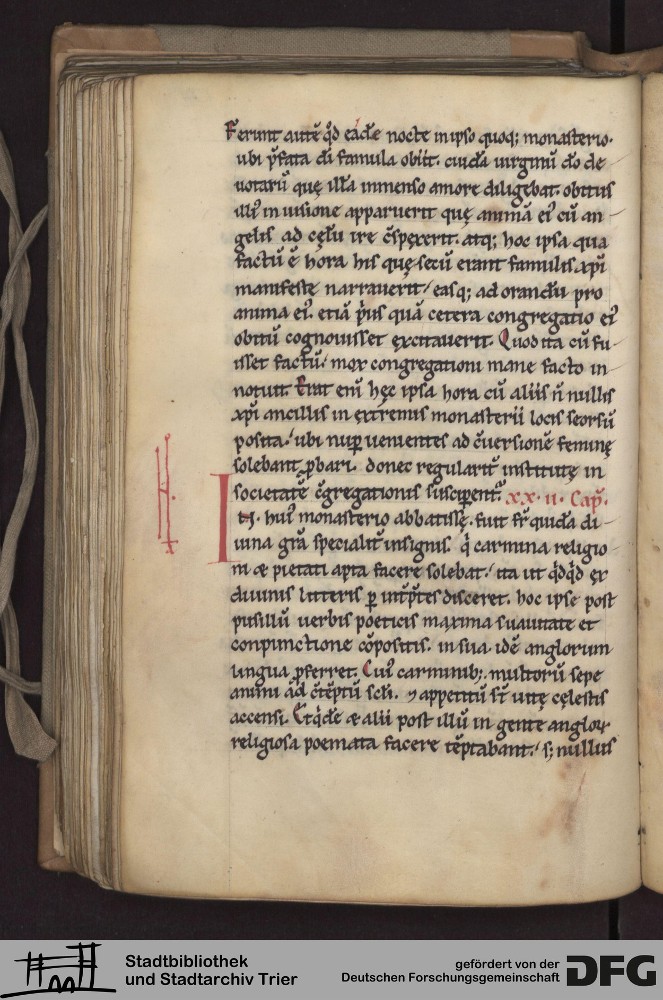 Ferunt autē q̇d eadē nocte in ipso quoq; monasterio.
ubi p̄fata dī famula obiit. cuidā uirginū dō de
uotarū quę illā inmenso amore diligebat. obitus
illiꝰ in uisione apparuerit quę animā eiꝰ cū an-
gelis ad cęlū ire c̄spexerit. atq; hoc ipsa qua
factū ē hora his quę secū erant famulis xp̄i
manifeste narrauerit / easq; ad orandū pro
anima eiꝰ. etiā p̍us quā cetera congregatio eiꝰ
obitū cognouisset excitauerit. Quod ita cū fu-
isset factū. mox congregationi mane facto in-
notuit. Erat enī hęc ipsa hora cū aliis ñ nullis
xp̄i ancillis in extremis monasterii locis seorsū
posita. ubi nup̄ uenientes ad c̄uersionē feminę
solebant ꝓbari. donec regularit̄ institutę in
societatē c̄gregationis susciperent̄. xx.ii. Cap̄.
IN huiꝰ monasterio abbatissę. fuit fr̄ quidā di-
uina grā specialit̄ insignis. q̍ carmina religio-
ni & pietati apta facere solebat. ita ut q̍dq̍d ex
diuinis litteris p̄ int̄p̄tes disceret. hoc ipse post
pusillū uerbis poeticis maxima suauitate et
conpunctione cōpositis. in sua idē anglorum
lingua ꝓferret. Cuiꝰ carminib;. multorū sepe
animi ad c̄tēptū scl̄i. ⁊ appetitū s̄t uitę cęlestis
accensi. Et q̍dē & alii post illū in gente angloꝝ
religiosa poemata facere tēptabant. s; nullus
Stadtbibliothek
und Stadtarchiv Trier
gefördert von der
Deutschen Forschungsgemeinschaft
DFG